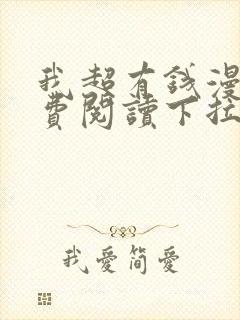 我超有錢漫
費閱讀下拉
我愛簡愛